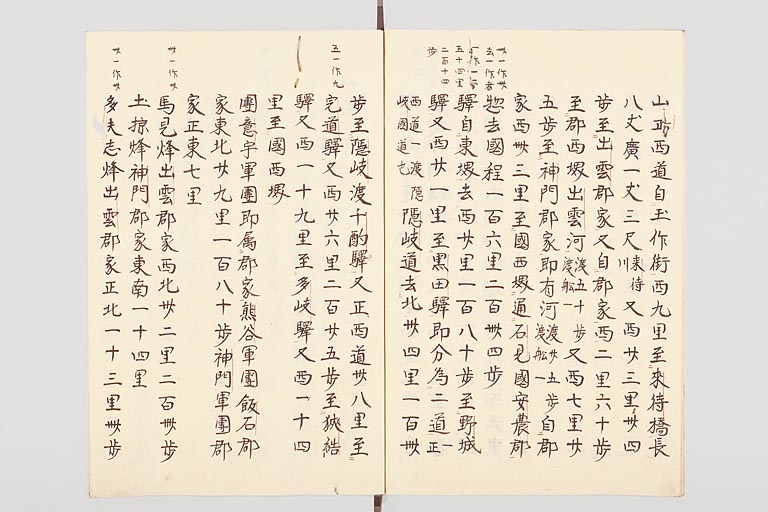 山正西道自玉作街西九里至來待橋長
八丈廣一丈三尺來待川又西廿三里卅四
步至出雲郡家又自郡家西二里六十步
至郡西堺出雲河渡五十步渡舩一又西七里廿
五步至神門郡家即有河渡廿五步渡舩一自郡
家西卅三里至國西堺通石見國安農郡
去一作者
惣去國程一百六里二百卌四步
驛自東堺去西廿里一百八十步至野城
驛又西廿一里至黒田驛即分為二道一正
西道一渡隠岐國道也隠岐道去北卅四里一百卅
步至隠岐渡千酌驛又正西道卅八里至
五一作九
宍道驛又西廿六里二百廿五步至狹結
驛又西一十九里至多岐驛又西一十四
里至國西堺
團意宇軍團即属郡家熊谷軍團飯石郡
家東北廿九里一百八十步神門軍團郡
家正東七里
馬見烽出雲郡家西北卅二里二百卌步
土掠烽神門郡家東南一十四里
多夫志烽出雲郡家正北一十三里卌步